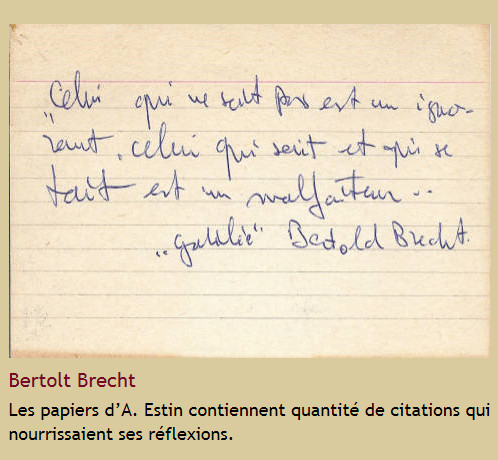 „Celui qui ne sait pas est un igno-
rant, celui qui sait et qui se
tait est un malfaiteur..
„Galilée“ Bertold Brecht.
Bertolt Brecht
Les papiers d’A. Estin contiennent quantité de citations qui
nourrissaient ses réflexions.